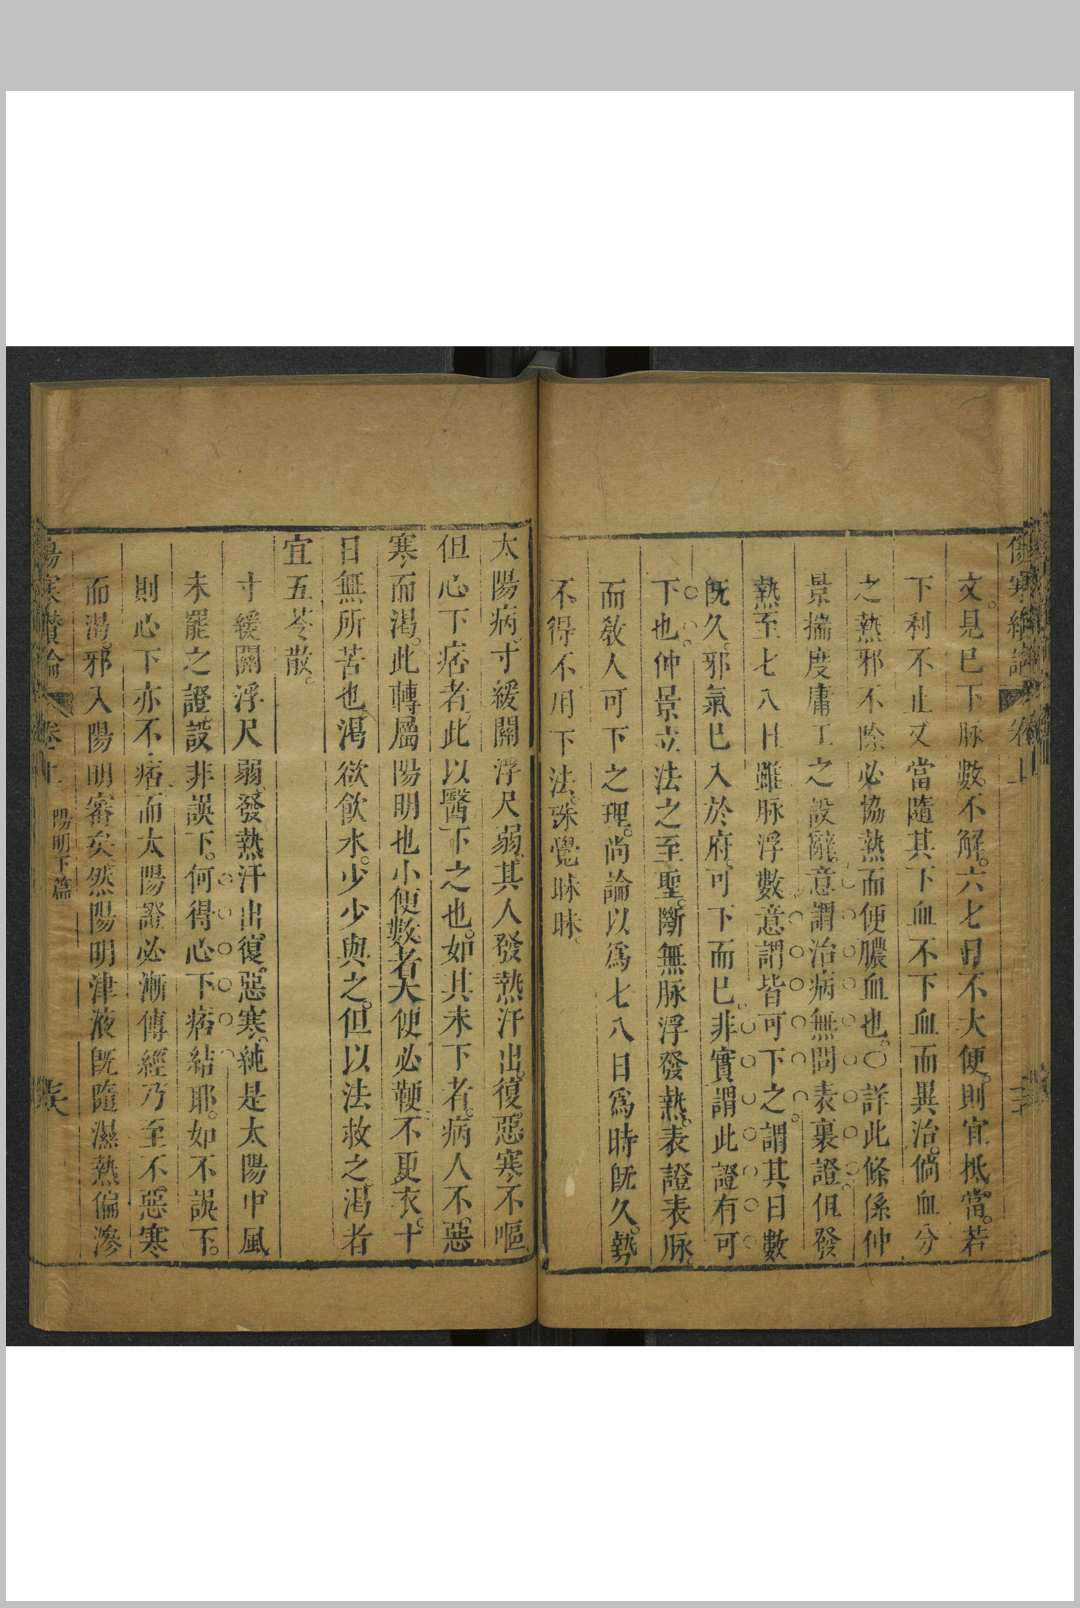 傷寒纘論
文見已下脉數不解。六七日不大便。則宜抵當。若
下利不止又當隨其下血不下血而異治。倘血分
之熱邪不除必協熱而便膿血也。○詳此條係仲
景揣度庸工之設辭。意謂治病無問表裏證。但發
熱至七八日雖脉浮數意謂皆可下之。謂其日數
旣久。邪氣已入於府。可下而已。非實謂此證有可
下也。仲景立法之至聖。斷無脉浮發熱。表證表脉。
而敎人可下之理。尚論以爲七八日爲時旣久。勢
不得不用下法。殊覺昧昧。
太陽病。寸緩關浮尺弱。其人發熱汗出。復惡寒。不嘔。
但心下痞者。此以醫下之也。如其未下者。病人不惡
寒而渴。此轉屬陽明也小便數者大便必鞕。不更衣。十
日無所苦也。渴欲飲水。少少與之。但以法救之。渴者
宜五苓散。
寸緩關浮尺弱。發熱汗出。復惡寒。純是太陽中風
未罷之證。設非誤下。何得心下痞結耶。如不誤下。
則心下亦不痞。而太陽證必漸傳經乃至不惡寒
而渴。邪入陽明審矣。然陽明津液旣隨濕熱偏滲
傷寒纘論 卷上 陽明下篇